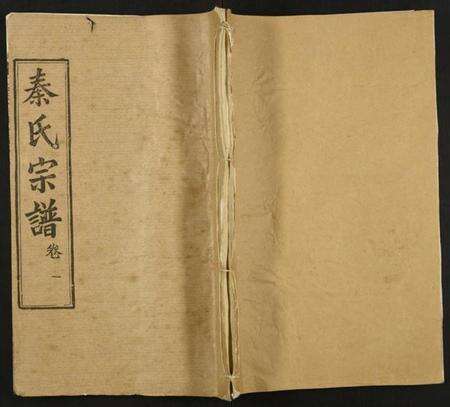 秦氏宗譜 卷一